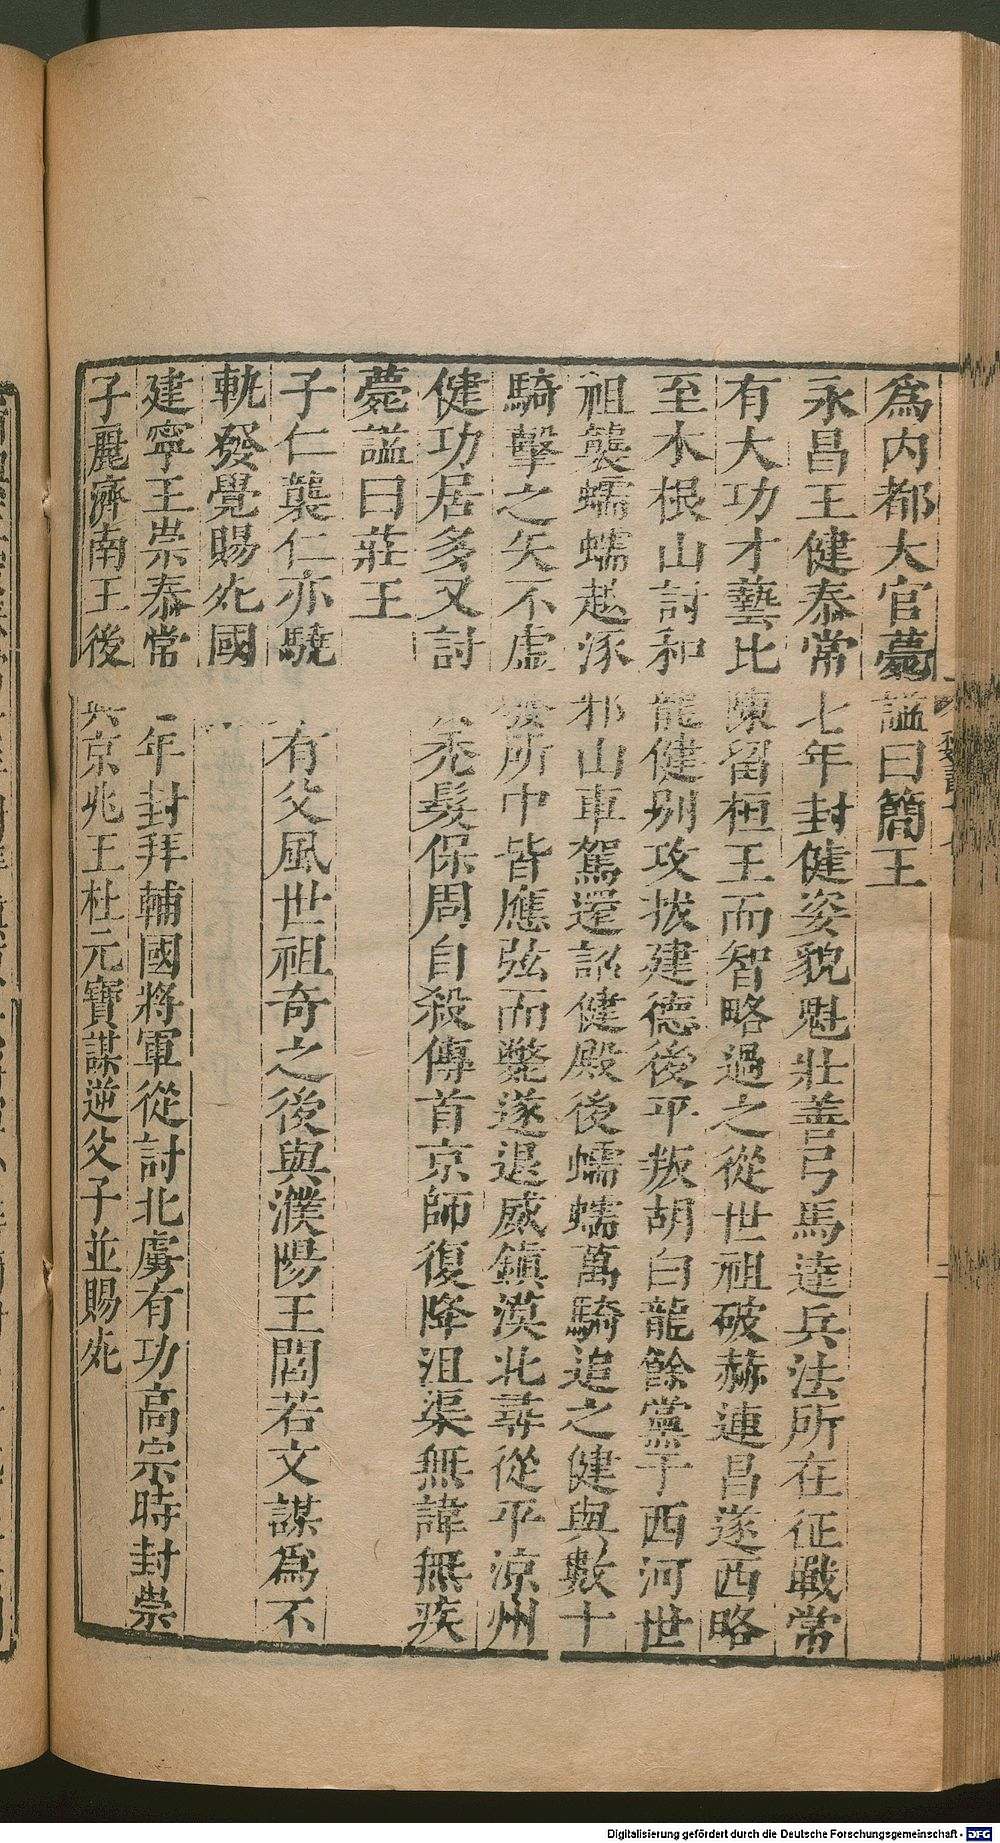 爲内都大官薨謚曰簡王
永昌王健泰常七年封健姿貌魁壯善弓馬達兵法所在征戰常
有大功才藝比陳留桓王而智略過之從世祖破赫連昌遂西略
至木根山討和龍健别攻拔建德後平叛胡白龍餘黨于西河世
祖襲蠕蠕越涿邪山車駕還詔健殿後蠕蠕萬騎追之健與數十
騎擊之矢不虚發所中皆應弦而斃遂退威鎮漠北尋從平涼州
健功居多又討禿髮保周自殺傳首京師復降沮渠無諱無疾
薨謚曰莊王
子仁襲仁亦驍有父風世祖奇之後與濮陽王閭若文謀爲不
軌發覺賜死國
建寧王崇泰常年封拜輔國將軍從討北虜有功高宗時封崇
子麗濟南王後京兆王杜元寶謀逆父子並賜死
Digitalisierung gefördert durch die Deutsche Forschungsgemeinschaft - DFG